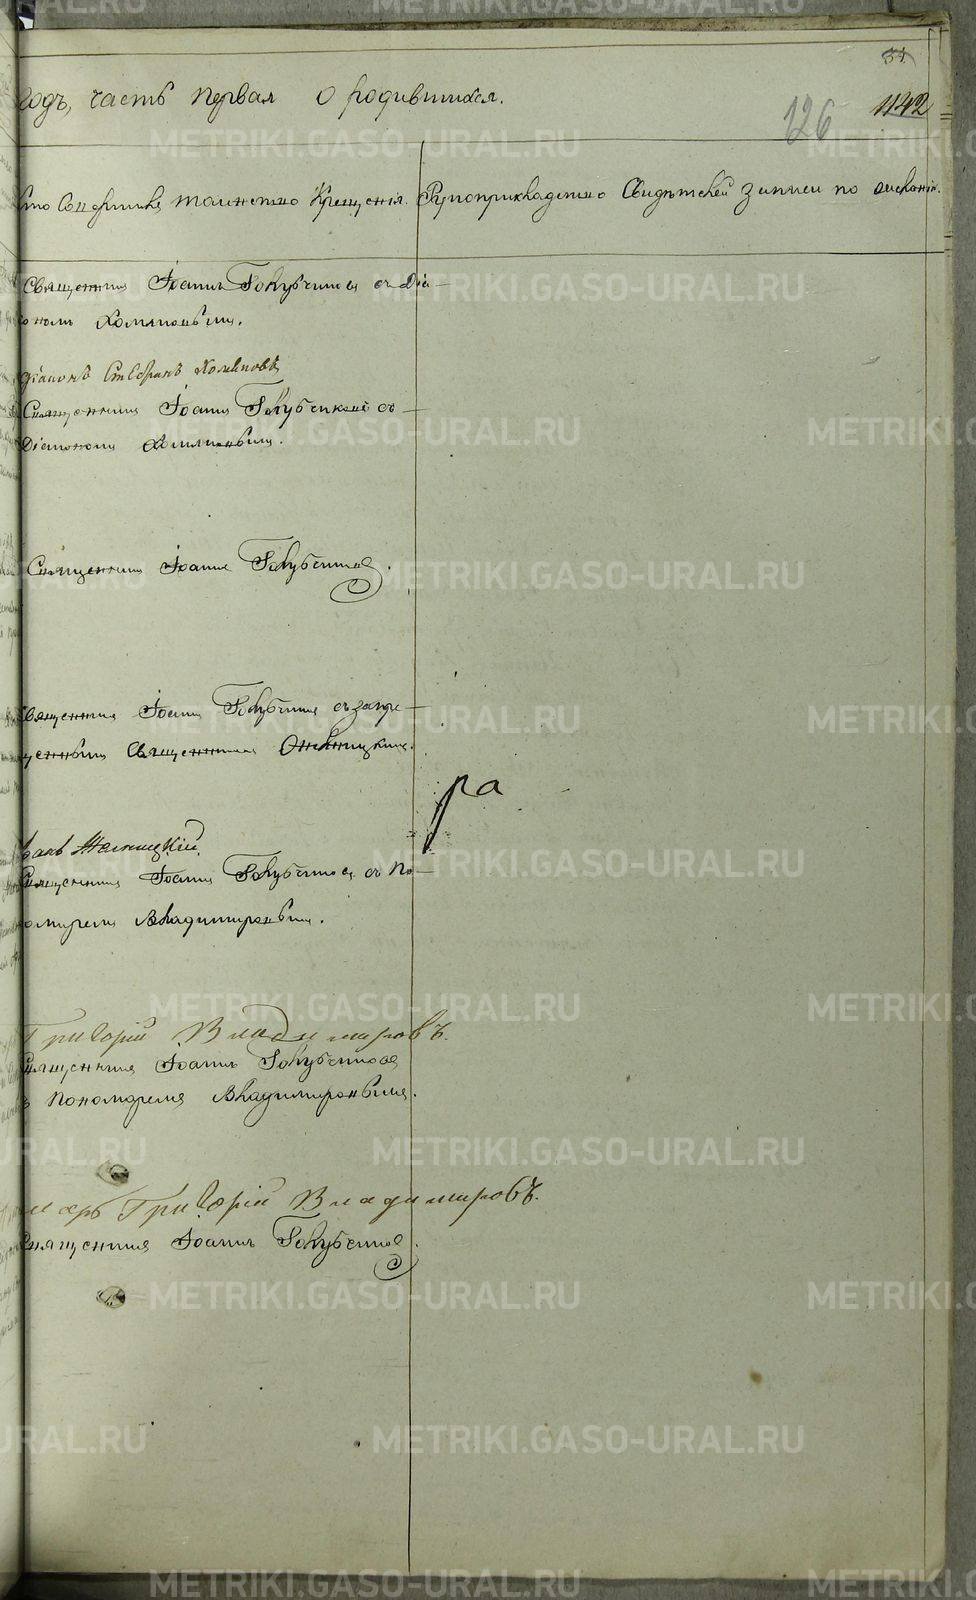 31.
годъ, часть первая о родившихся.
126 1142
Кто совершилъ таинство Крещенія. Рукоприкладство Свидѣтелей записи по желанію.
Священник Іоаннъ Голубчиков съ Діа-
кономъ Хомяковым.
діаконъ Стефанъ Хомяковъ
Священник Іоаннъ Голубчиковъ съ
Діакономъ Хомяковым.
Священник Іоаннъ Голубчиков.
Священник Іоаннъ Голубчиков съ запре-
щенным Священником
Священник Іоаннъ Голубчиков съ По-
номарем Владимировым.
ра
Григорій Владимировъ.
Священник Іоаннъ Голубчиков
Пономарем Владимировым.
марь Григорій Владимировъ.
Священник Іоаннъ Голубчиков.
METRIKI.GASO-URAL.RU